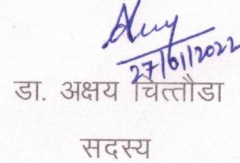 27/01/2022
डा. अक्षय चित्तौडा
सदस्य